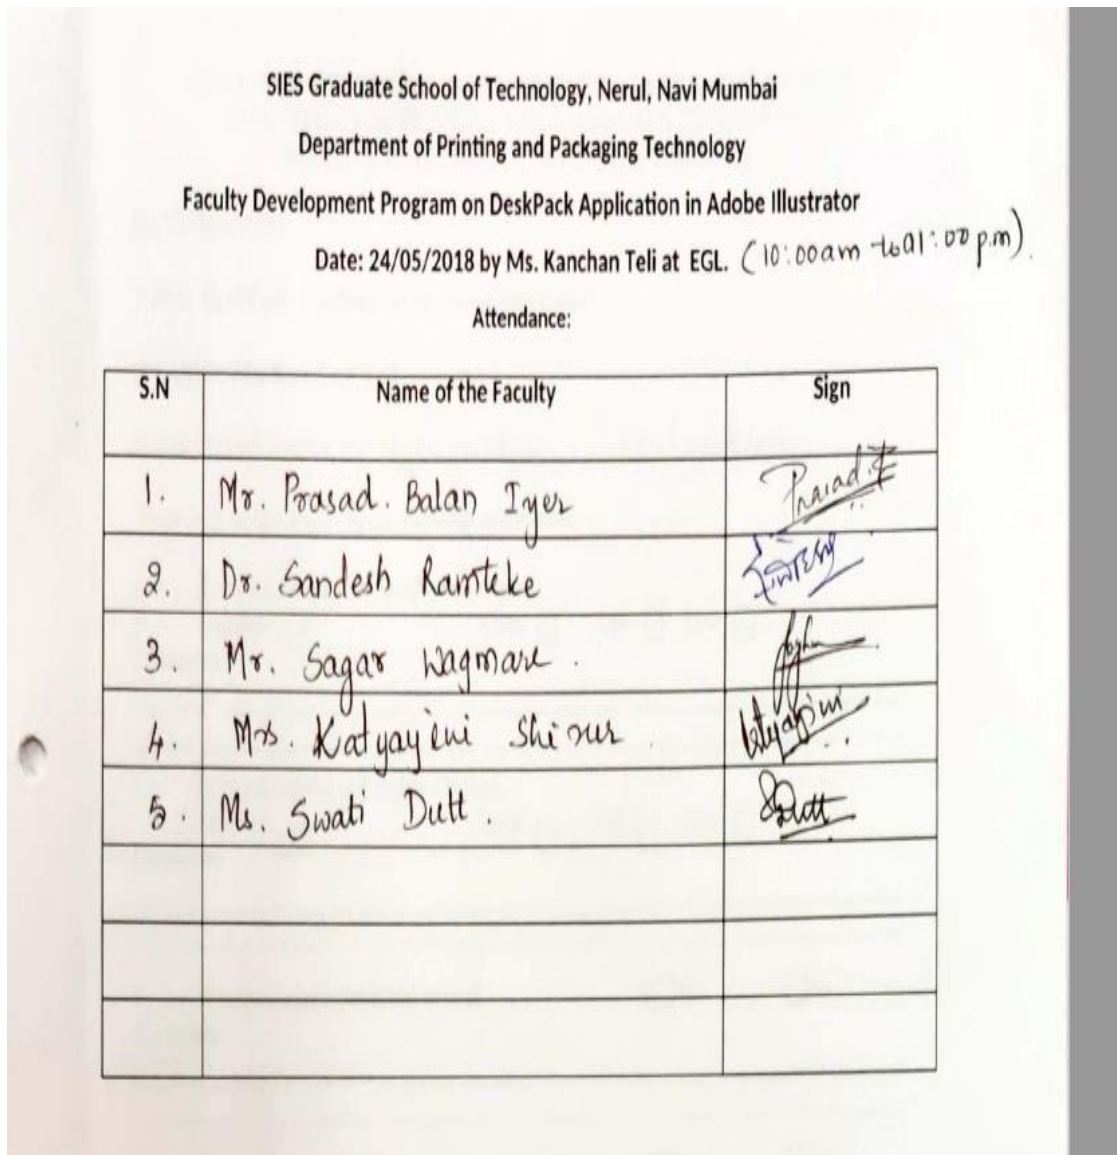 SIES Graduate School of Technology, Nerul, Navi Mumbai
Department of Printing and Packaging Technology
Faculty Development Program on DeskPack Application in Adobe Illustrator
Date: 24/05/2018 by Ms. Kanchan Teli at EGL. (10:00am to 01:00 p.m).
Attendance:
S.N Name of the Faculty Sign
1. Mr. Prasad. Balan Iyer Prasad
2. Dr. Sandesh Ramteke
3. Mr. Sagar Wagmare.
4. Mrs. Katyayini Shirur. Katyayini
5. Ms. Swati Dutt. SDutt